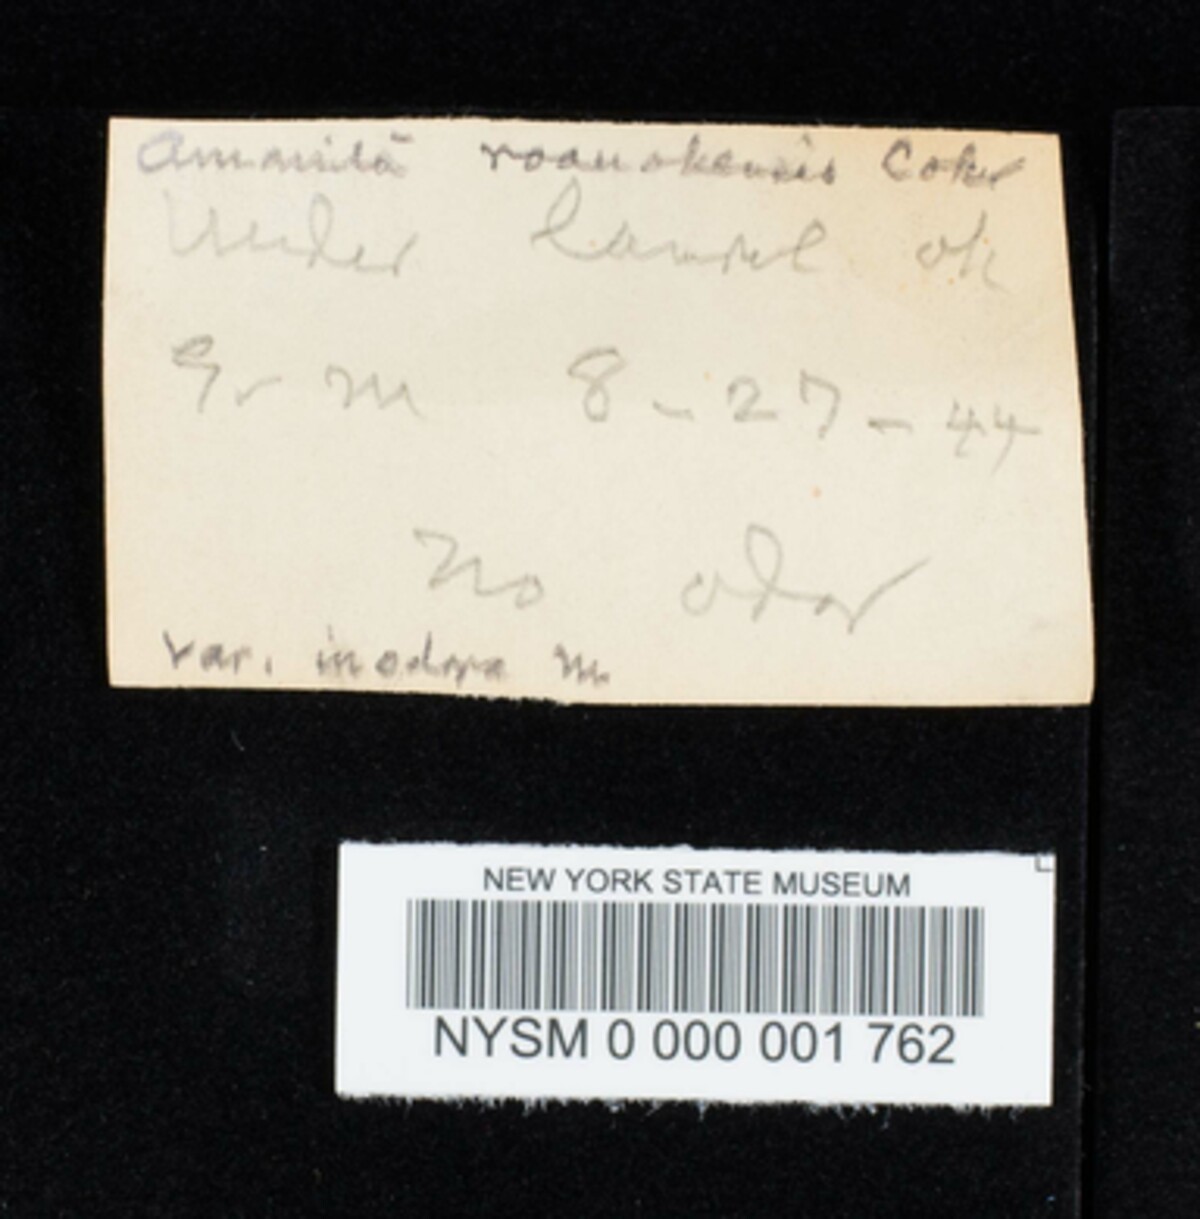 Amanita roanokensis Coker
Under laurel ok
Gr M 8-27-44
No odor
var. inodora M.
NEW YORK STATE MUSEUM
NYSM 0 000 001 762